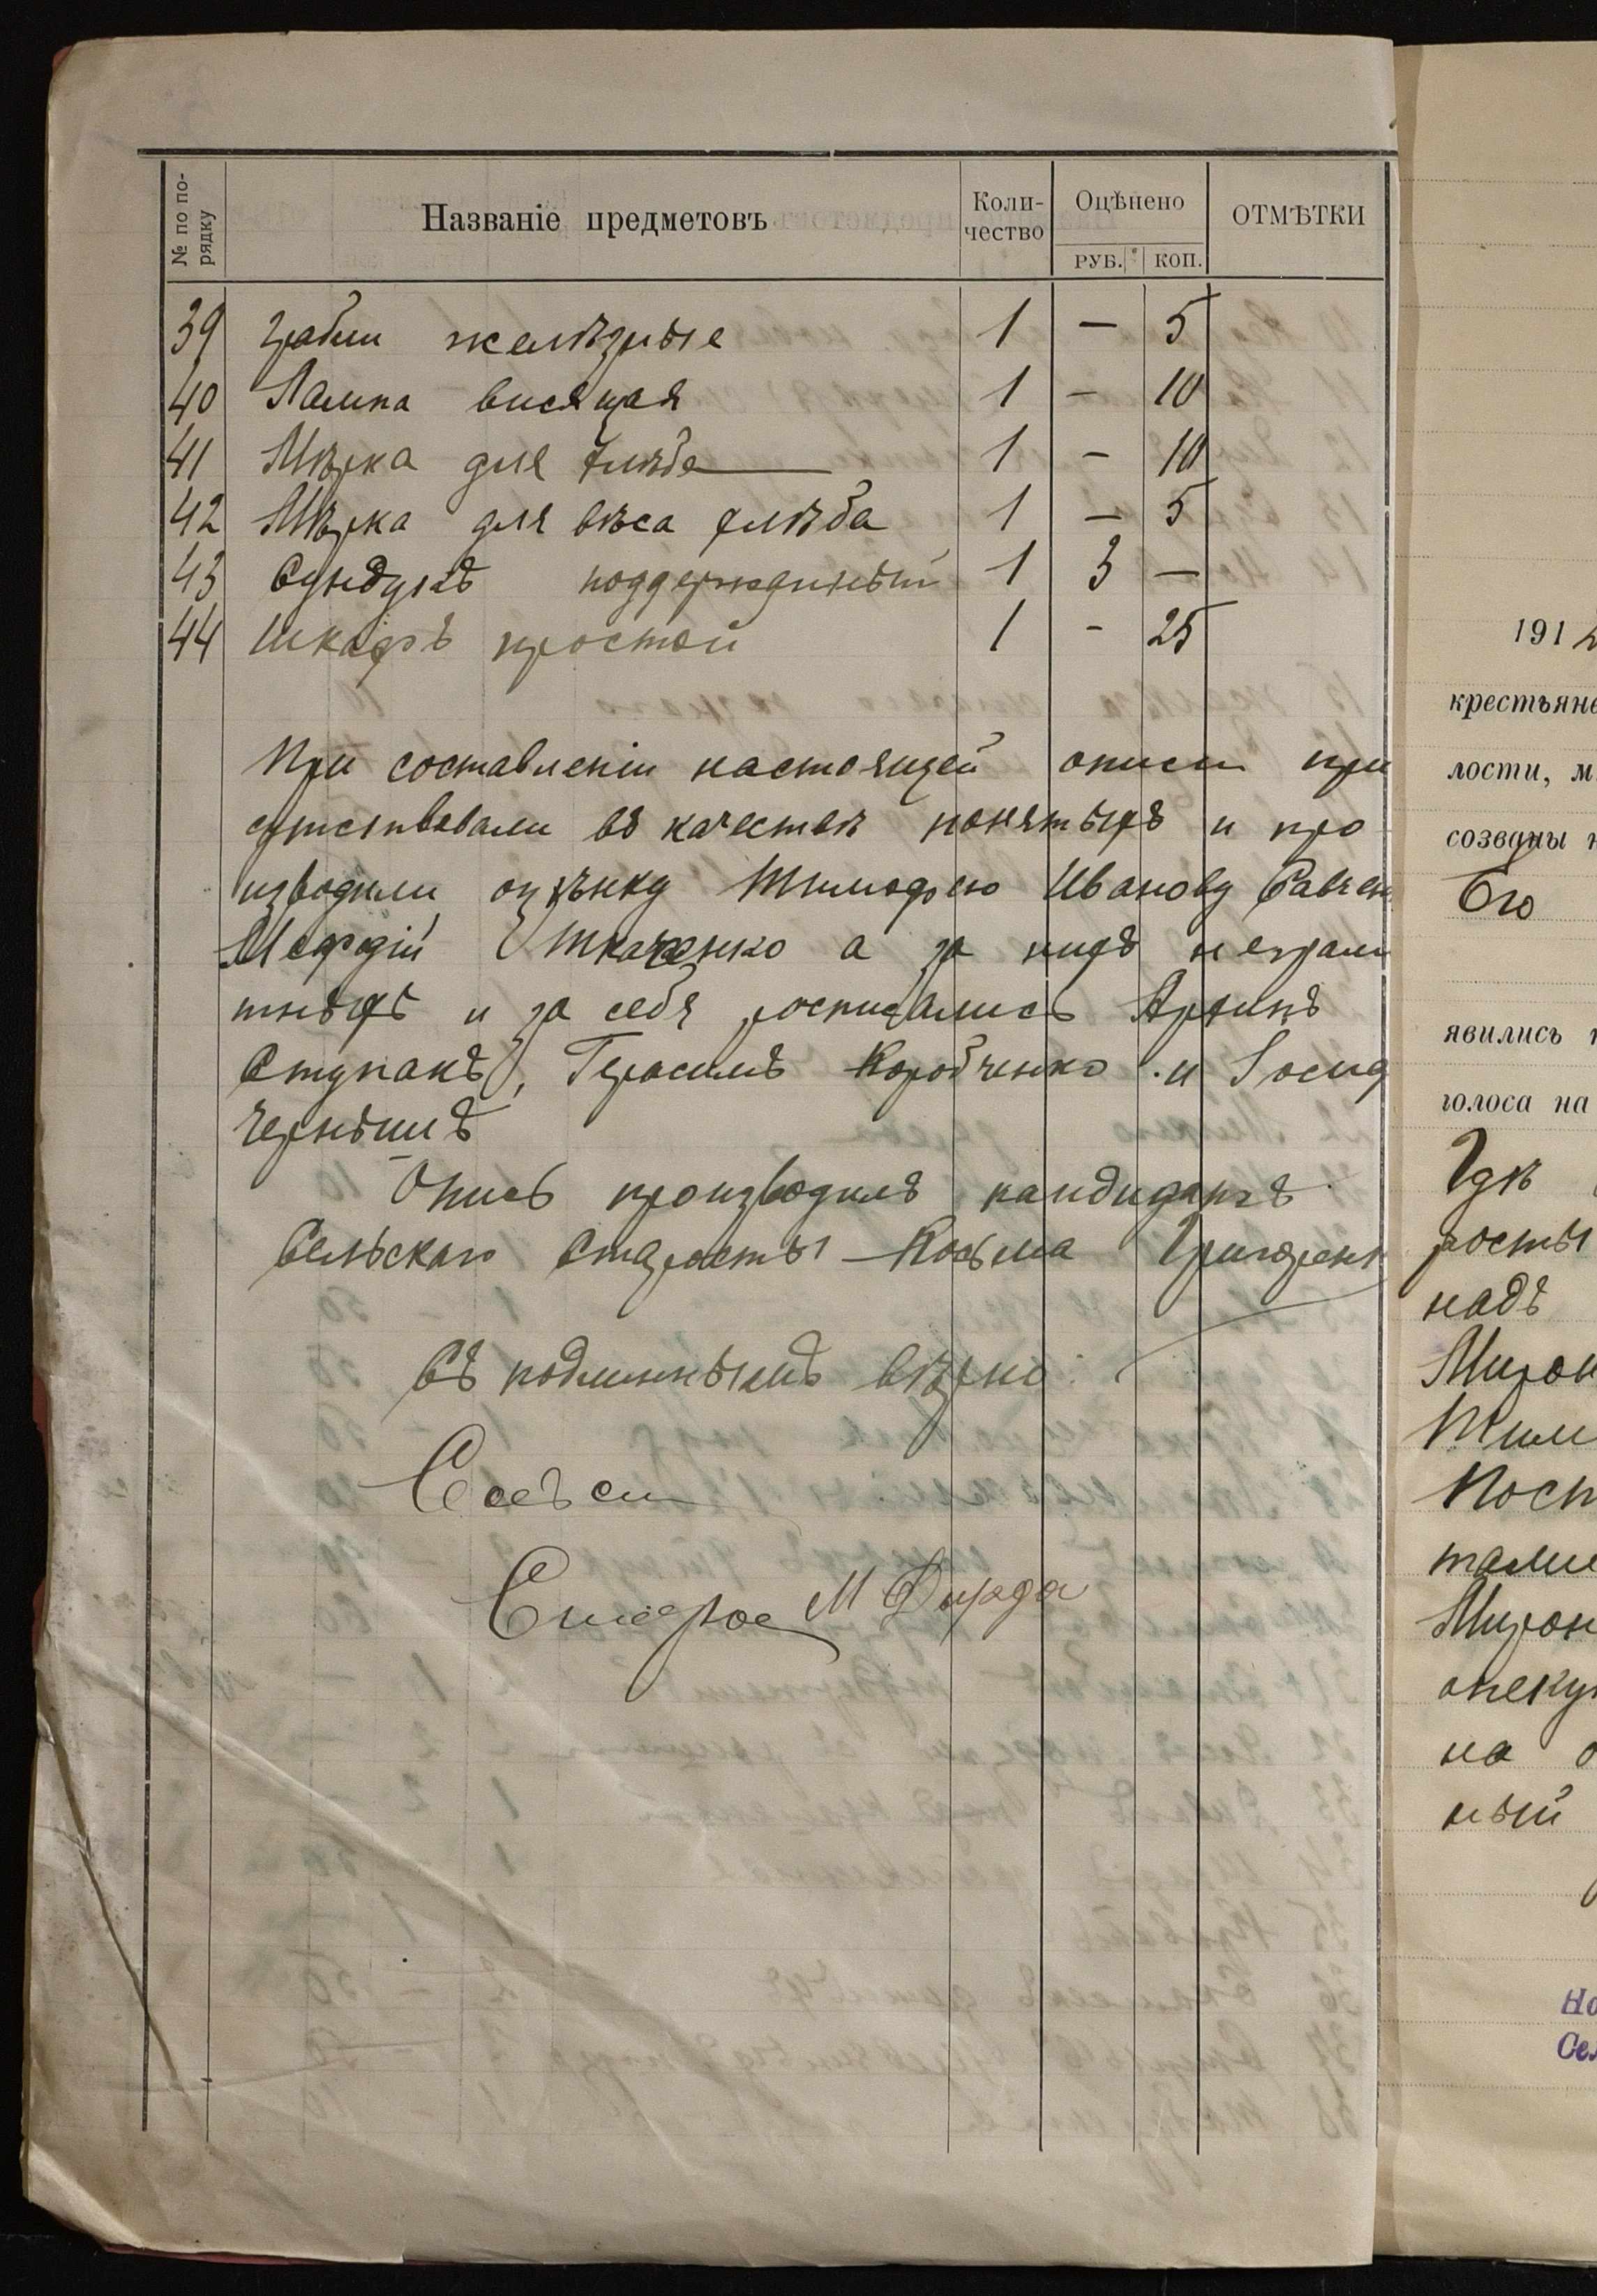 № по по-
рядку
Названіе предметовъ
Коли-
чество
Оцѣнено
РУБ.
КОП.
ОТМѢТКИ
39 Грабли желѣзные 1 — 5
40 Лампа висящая 1 — 10
41 Мѣрка для хлѣба 1 — 10
42 Мѣрка для вѣса хлѣба 1 — 5
43 Сундукъ поддержанный 1 3 —
44 Шкафъ простой 1 - 25
При составленіи настоящей описи при
сутствовали въ качествѣ понятыхъ и про
изводили оцѣнку Тимофею Иванову Савчен
Мефодій Ткаченко а за нихъ неграм
тныхъ и за себя росписались
Ступакъ, Герасимъ Коробченко и Іосид
Чернышъ
Опись производилъ кандидатъ
Сельскаго Старосты Косьма Григорен
Съ подлиннымъ вѣрно:
Сельск
Старос М Дирда
191
крестьяне
лости, м
созваны н
Его
явились
голоса на
Гдѣ
росты
надъ
Мирон
Тим
Пост
тами
Мирон
опеку
на о
ный
Но
Сел